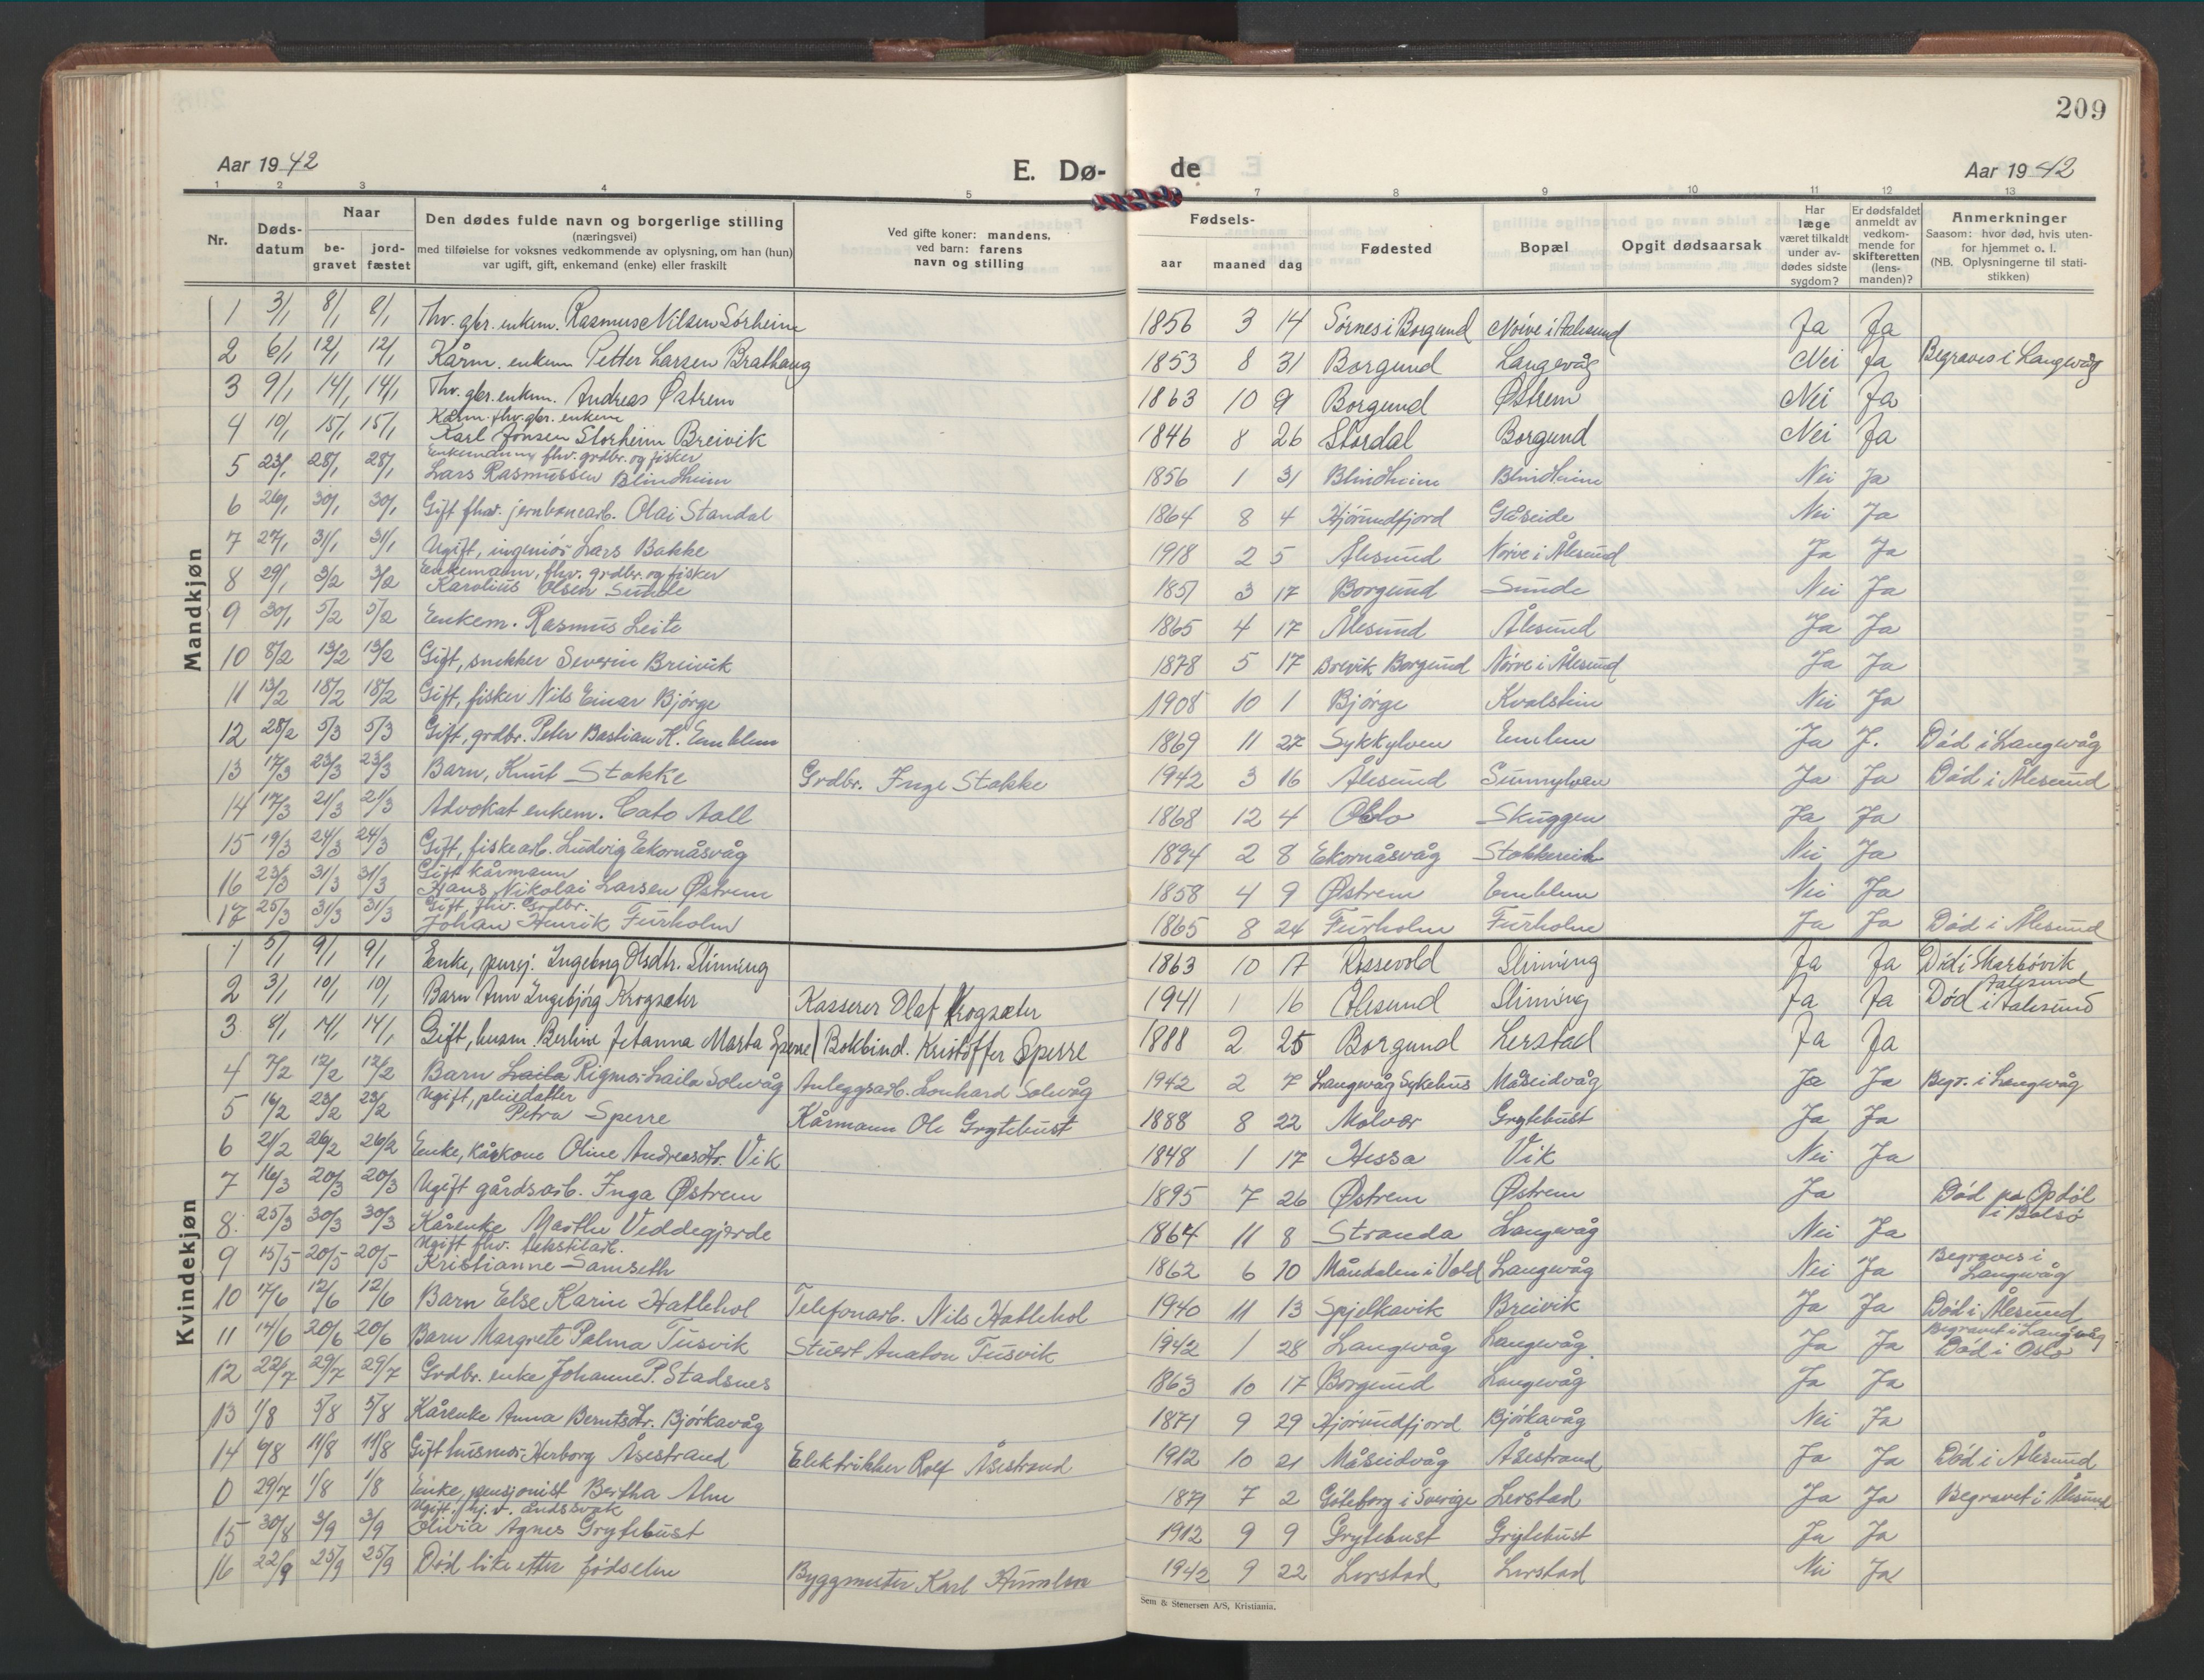 209
Aar 1942
E. Dø- de
Aar 1942
1 2 3 4 5 7 8 9 10 11 12 13
Nr.
Døds-datum
Naar
be-gravet
jord-fæstet
Den dødes fulde navn og borgerlige stilling
(næringsvei)
med tilføielse for voksnes vedkommende av oplysning, om han (hun)
var ugift, gift, enkemand (enke) eller fraskilt
Ved gifte koner: mandens,
ved barn: farens
navn og stilling
Fødsels-
aar maaned dag
Fødested
Bopæl
Opgit dødsaarsak
Har læge været tilkaldt under av-dødes sidste sygdom?
Er dødsfaldet anmeldt av vedkom-mende for skifteretten (lens-manden)?
Anmerkninger
Saasom: hvor død, hvis uten-for hjemmet o. l.
(NB. Oplysningerne til stati-stikken)
Mandkjøn
1 3/1 8/1 8/1 Fhv. gbr. enkem. Rasmus Nilsen Sørheim 1856 3 14 Sørnes i Borgund Nørve i Aalesund Ja Ja
2 6/1 12/1 12/1 Kårm. enkem Petter Larsen Brathaug 1853 8 31 Borgund Langevåg Nei Ja Begraves i Langevåg
3 9/1 14/1 14/1 Fhv. gbr. enkm. Andreas Østrem 1863 10 9 Borgund Østrem Nei Ja
4 10/1 15/1 15/1 Kårm. fhv. gbr. enkem Karl Jonsen Storheim Breivik 1846 8 26 Stordal Borgund Nei Ja
5 23/1 28/1 28/1 Enkemann fhv. grdbr. og fisker Lars Rasmussen Blindheim 1856 1 31 Blindheim Blindheim Nei Ja
6 26/1 30/1 30/1 Gift fhv. jernbanearb. Olai Standal 1864 8 4 Hjørundfjord Gåseide Nei Ja
7 27/1 31/1 31/1 Ugift, ingeniør Lars Bakke 1918 2 5 Ålesund Nørve i Ålesund Ja Ja
8 29/1 3/2 3/2 Enkemann, fhv. grdbr. og fisker Karolius Olsen Sunde 1851 3 17 Borgund Sunde Nei Ja
9 30/1 5/2 5/2 Enkem. Rasmus Leite 1865 4 17 Ålesund Ålesund Ja Ja
10 8/2 13/2 13/2 Gift, snekker Severin Breivik 1878 5 17 Brevik Borgund Nørve i Ålesund Ja Ja
11 13/2 18/2 18/2 Gift, fisker Nils Einar Bjørge 1908 10 1 Bjørge Kvalstein Nei Ja
12 28/2 5/3 5/3 Gift, grdbr. Peter Bastian K. Emblem 1869 11 27 Sykkylven Emlem Ja J. Død i Langevåg
13 17/3 23/3 23/3 Barn, Knut Stokke Grdbr. Inge Stokke 1942 3 16 Ålesund Sunnylven Ja Ja Død i Ålesund
14 17/3 21/3 21/3 Advokat enkem. Cato Aall 1868 12 4 Oslo Skuggen Ja Ja
15 19/3 24/3 24/3 Gift, fiskearb. Ludvig Ekornåsvåg 1894 2 8 Ekornåsvåg Stokkereit Nei Ja
16 23/3 31/3 31/3 Gift kårmann Hans Nikolai Larsen Østrem 1858 4 9 Østrem Emblem Nei Ja
17 25/3 31/3 31/3 Gift, fhv. Grdbr. Johan Henrik Furholm 1865 8 24 Furholm Furholm Ja Ja Død i Ålesund
Kvindekjøn
1 5/1 9/1 9/1 Enke, pensj. Ingeborg Olsdtr. Slinning 1863 10 17 Rossevold Slinning Ja Ja Død i Skarbøvik Aalesund
2 3/1 10/1 10/1 Barn Ann Ingebjørg Krogsæter Kasserer Olaf Krogsæter 1941 1 16 Ålesund Slinning Ja Ja Død i Aalesund
3 8/1 14/1 14/1 Gift, husm. Berline Jetanna Marta Sperre Bokbind. Kristoffer Sperre 1888 2 25 Borgund Lerstad Ja Ja
4 7/2 12/2 12/2 Barn Laila Rigmor Laila Solevåg Anleggsarb. Lenhard Solevåg 1942 2 7 Langevåg Sykehus Måseidvåg Ja Ja Begr. i Langevåg
5 16/2 23/2 23/2 Ugift, pleiedatter Petra Sperre Kårmann Ole Grytebust 1888 8 22 Molvær Grytebust Ja Ja
6 21/2 26/2 26/2 Enke, kårkone Oline Andreasdtr. Vik 1848 1 17 Hessa Vik Nei Ja
7 16/3 20/3 20/3 Ugift gårdsarb. Inga Østrem 1895 7 26 Østrem Østrem Ja Død på Opdøl i Bolsø
8 25/3 30/3 30/3 Kårenke Marthe Veddegjerde 1864 11 8 Stranda Langevåg Nei Ja
9 15/5 20/5 20/5 Ugift fhv. tekstilarb. Kristianne Samseth 1862 6 10 Måndalen i Vold Langevåg Nei Ja Begraves i Langevåg
10 7/6 12/6 12/6 Barn Else Karin Hatlehol Telefonarb. Nils Hatlehol 1940 11 13 Spjelkavik Breivik Ja Ja Død i Ålesund
11 14/6 20/6 20/6 Barn Margrete Palma Tusvik Stuert Anaton Tusvik 1942 1 28 Langevåg Langevåg Ja Ja Begravet i Langevåg Død i Oslo
12 22/7 29/7 29/7 Grdbr. enke Johanne P. Stadsnes 1863 10 17 Borgund Langevåg Ja Ja
13 1/8 5/8 5/8 Kårenke Anna Berntsdtr. Bjørkavåg 1871 9 29 Hjørundfjord Bjørkavåg Nei Ja
14 6/8 11/8 11/8 Gift husmor Herborg Åsestrand Elektrikker Rolf Åsestrand 1912 10 21 Måseidvåg Åsestrand Ja Ja Død i Ålesund
0 29/7 1/8 1/8 Enke, pensjonist Bertha Alm 1871 7 2 Göteborg i Sverige Lerstad Ja Ja Begravet i Ålesund
15 30/8 3/9 3/9 Ugift, hj. v. åndssvak Olivia Agnes Grytebust 1912 9 9 Grytebust Grytebust Ja Ja
16 22/9 25/9 25/9 Død like etter fødselen Byggmester Karl Humlen 1942 9 22 Lerstad Lerstad Nei Ja
Sem & Stenersen A/S, Kristiania.